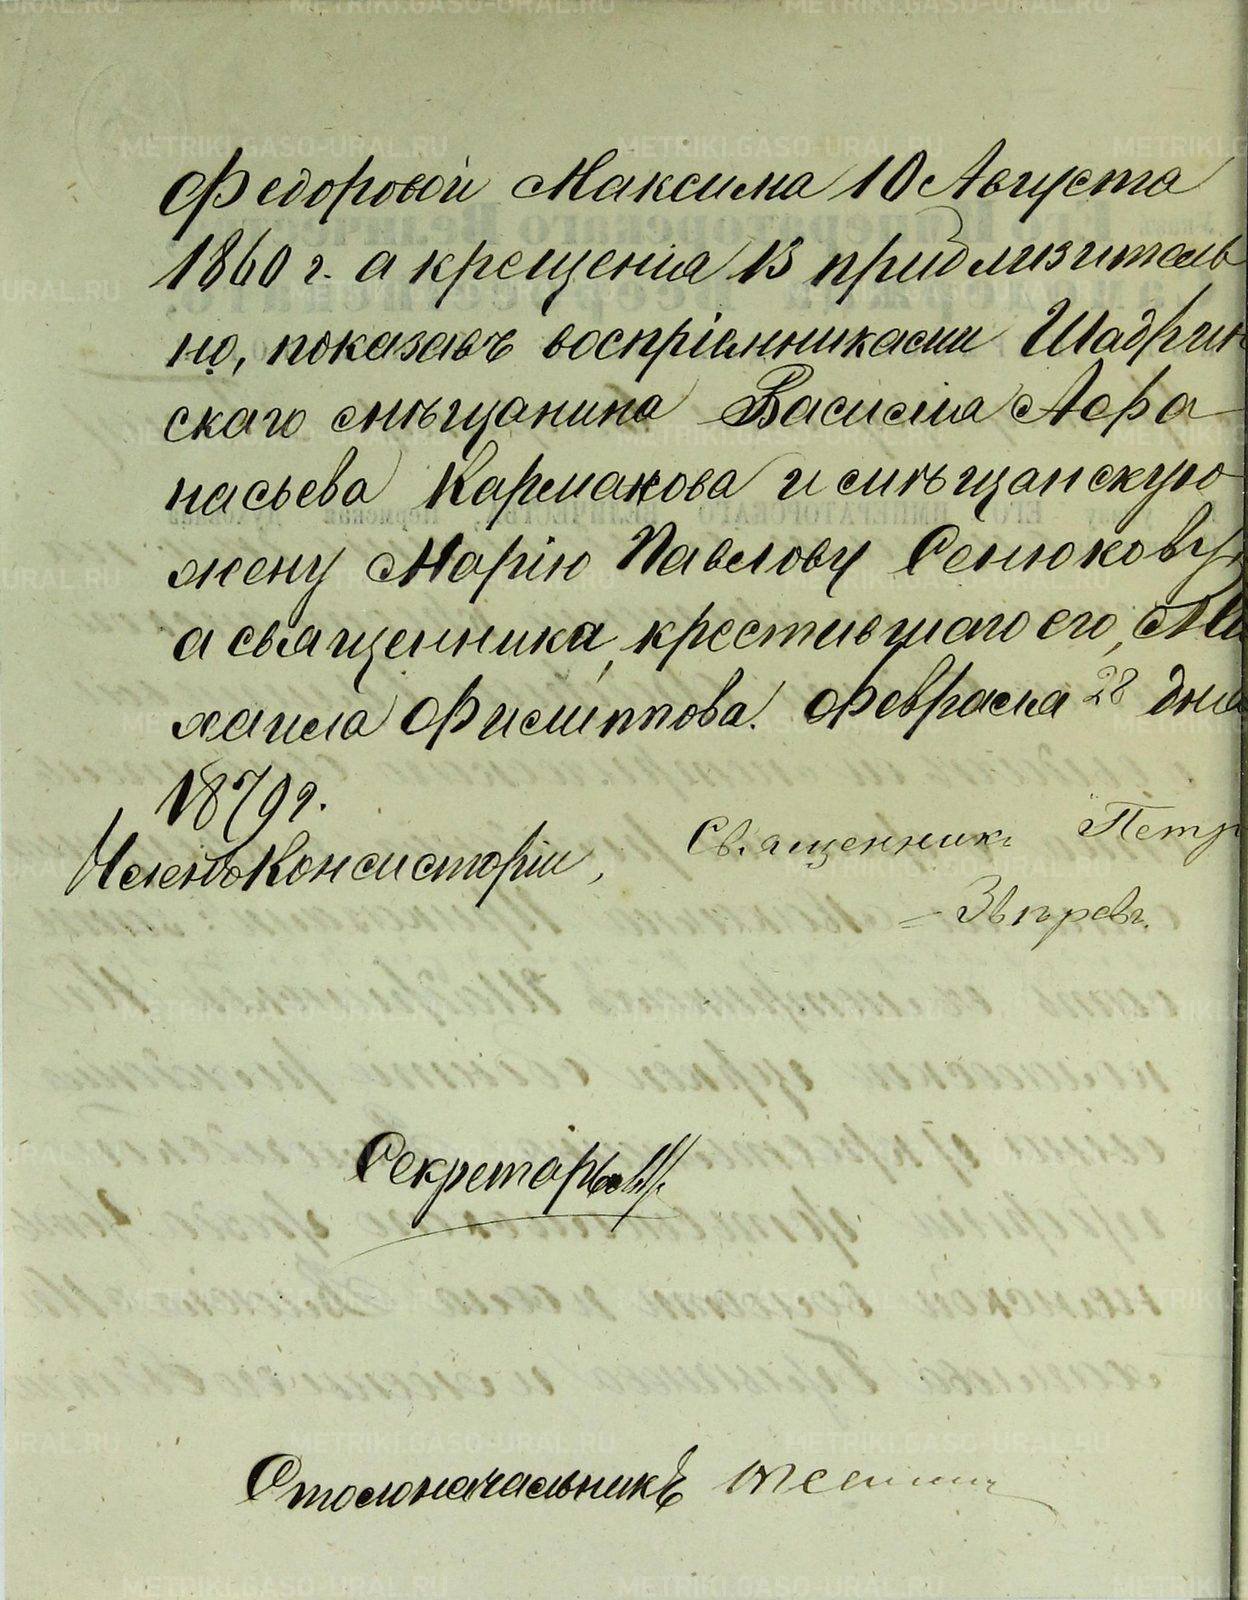 Федоровой Максима 10 Августа
1860 г. а крещенія 13 приблизитель
но, показавъ воспріемниками Шадрин
скаго мѣщанина Василія Афа
насьева Кармакова и мѣщанскую
жену Марію Павлову Сенюкову,
а священника, крестившаго его, Ми
хаила Филиппова. Февраля 28 дня
1879 г.
Членъ Консисторіи, Священникъ Петръ
Звѣревъ.
Секретарь
Столоначальникъ
METRIKI.GASO-URAL.RU